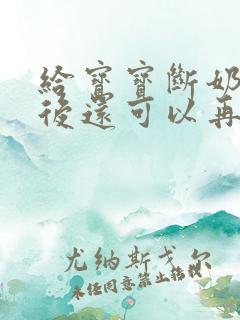 給寶寶斷奶
後還可以再
尤納斯戈尔
未经同意禁止转载